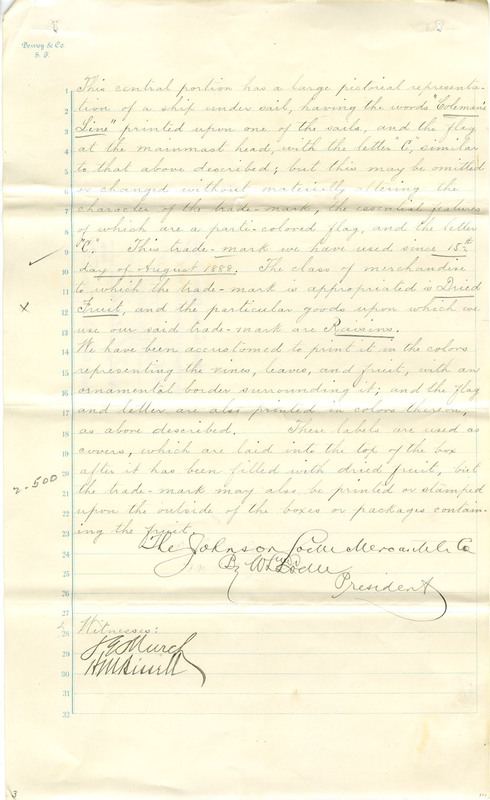 Dewey & Co.
S. F.
1 This central portion has a large pictorial representa-
2 tion of a ship under sail, having the words "Coleman's
3 Line" printed upon one of the sails, and the flag
4 at the mainmast head, with the letter "C", similar
5 to that above described; but this may be omitted
6 or changed without materially altering the
7 character of the trade-mark, the essential features
8 of which are a parti-colored flag, and the letter
9 "C." This trade-mark we have used since 15th
10 day of August 1888. The class of merchandise
11 to which the trade-mark is appropriated is Dried
12 Fruit, and the particular goods upon which we
13 use our said trade-mark are Raisins.
14 We have been accustomed to print it in the colors
15 representing the vines, leaves, and fruit, with an
16 ornamental border surrounding it; and the flag
17 and letter are also printed in colors thereon,
18 as above described. These labels are used as
19 covers, which are laid into the top of the box
20 after it has been filled with dried fruit, but
21 the trade-mark may also be printed or stamped
22 upon the outside of the boxes or packages contain-
23 ing the fruit.
24 The Johnson Locke Mercantile Co
25 By Wm Locke
26 President
27
28 Witnesses:
29
30
31
32
x
2-500
3